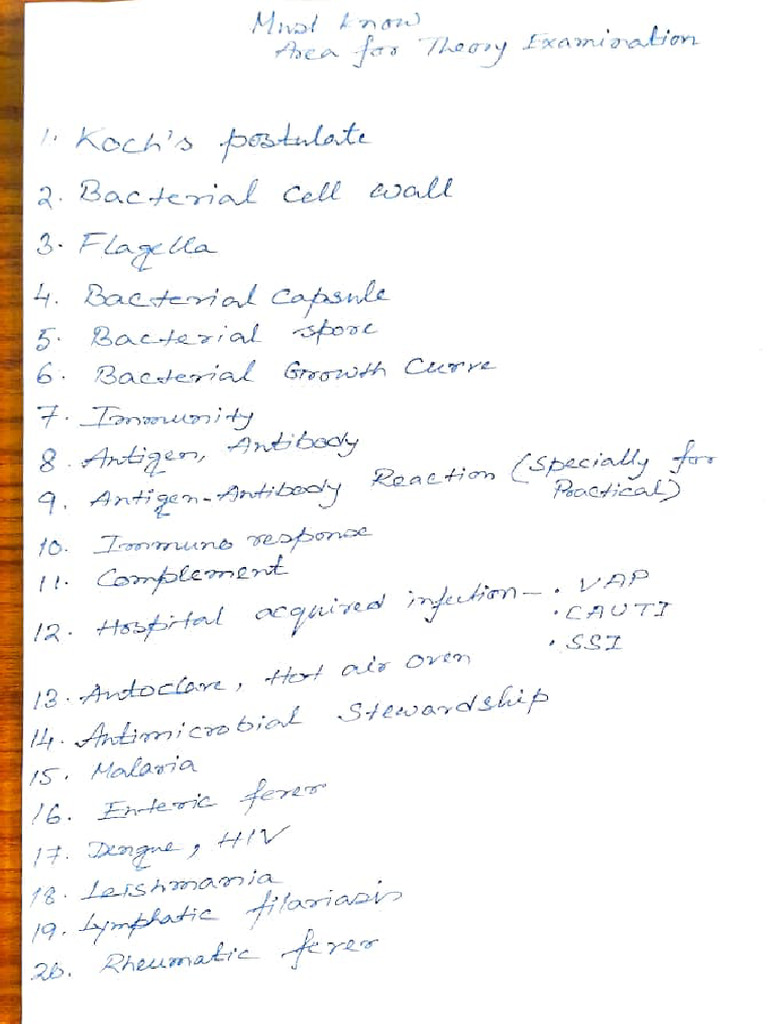 Must know
Area for Theory Examination
1. Koch's postulate
2. Bacterial cell wall
3. Flagella
4. Bacterial capsule
5. Bacterial spore
6. Bacterial Growth Curve
7. Immunity
8. Antigen, Antibody
9. Antigen-Antibody Reaction (Specially for
Practical)
10. Immuno response
11. Complement
12. Hospital acquired infection - • VAP
• CAUTI
• SSI
13. Autoclave, Hot air oven
14. Antimicrobial Stewardship
15. Malaria
16. Enteric fever
17. Dengue, HIV
18. Leishmania
19. Lymphatic filariasis
20. Rheumatic fever